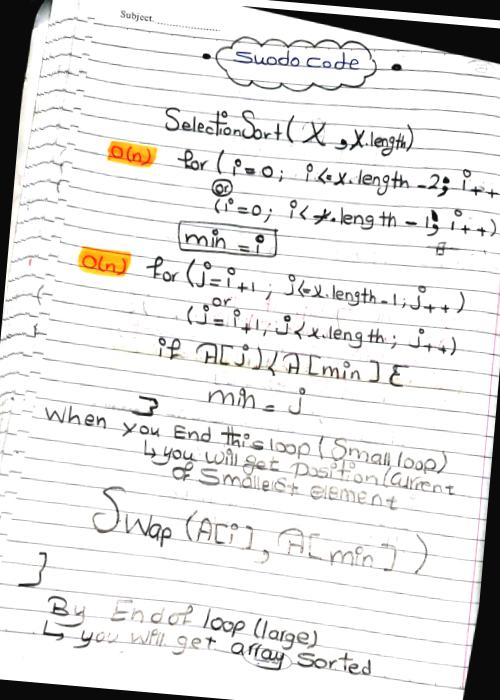 Subject
Suodo Code
SelectionSort( X , X.length)
O(n) for ( i=0; i<=x.length -2; i++
or
(i=0; i<x.length -1; i++)
min = i
O(n) for (j=i+1 ; j<=x.length-1; j++)
or
(j=i+1; j<x.length; j++)
if A[j]<A[min] {
min = j
}
When you End this loop (Small loop)
↳ you will get position/current
of Smallest element
Swap (A[i], A[min])
}
By End of loop (large)
↳ you will get array Sorted